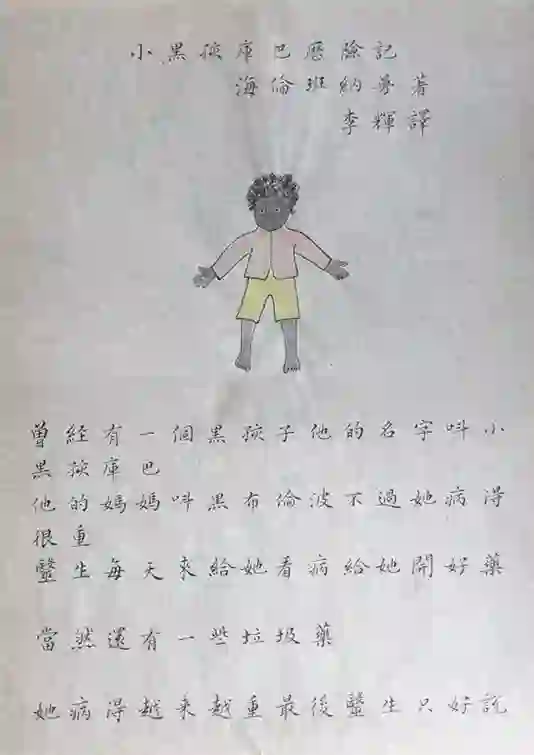 小黑孩庫巴歷險記
海倫班納曼著
李輝譯
曾經有一個黑孩子他的名字叫小
黑孩庫巴
他的媽媽叫黑布倫波不過她病得
很重
醫生每天來給她看病給她開好藥
當然還有一些垃圾藥
她病得越來越重最後醫生只好說